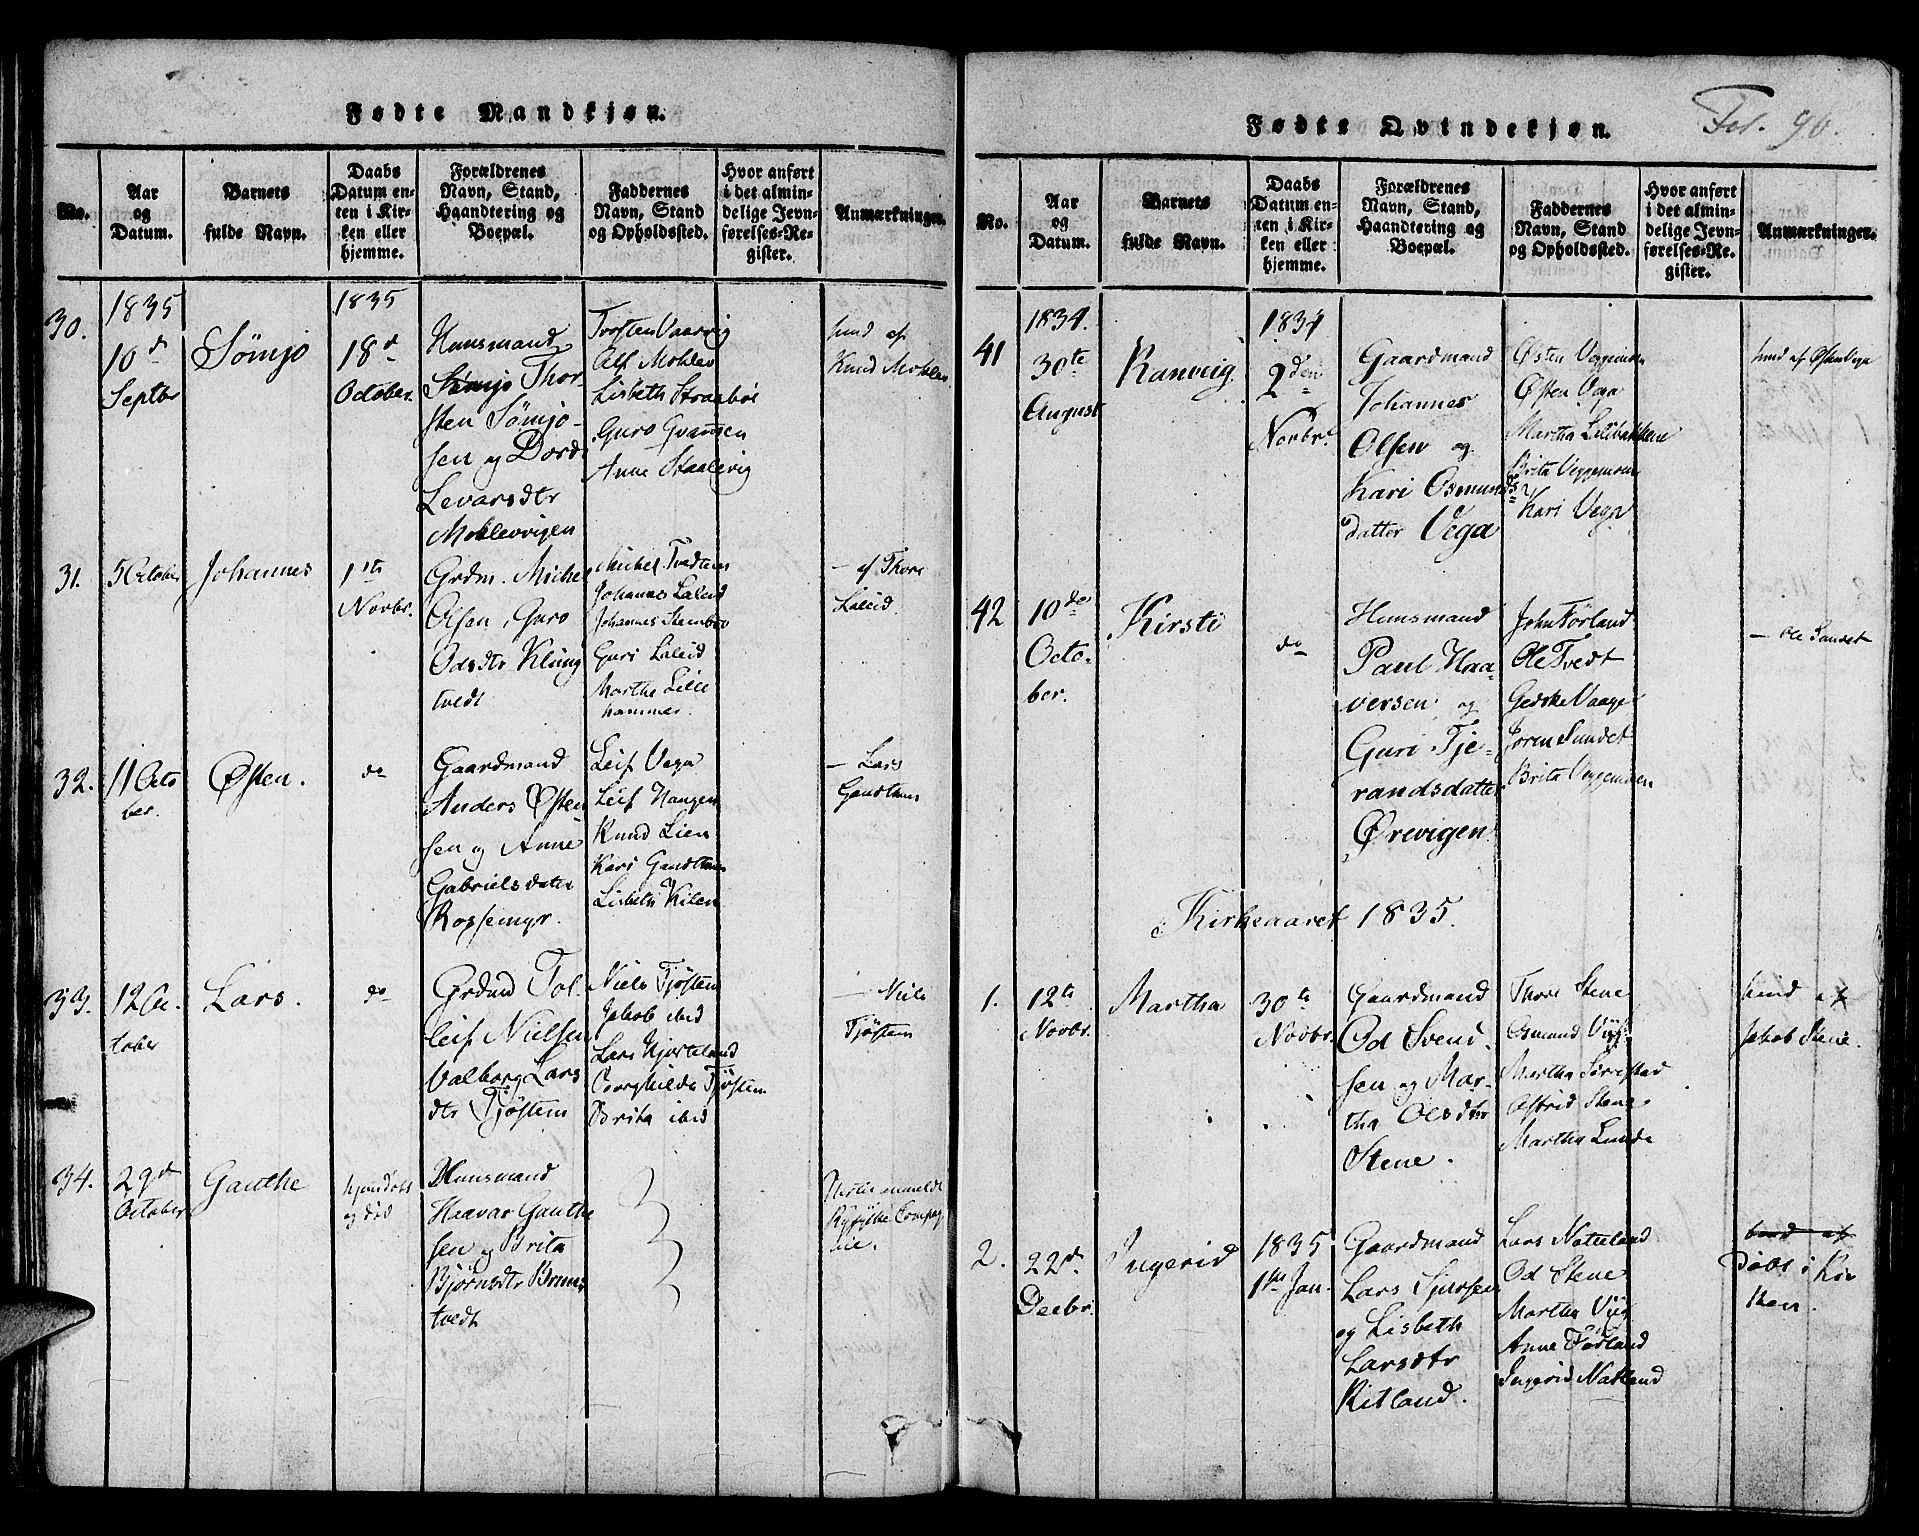 Fødte Mandkjøn.
No.
Aar
og
Datum.
Barnets
fulde Navn.
Daabs
Datum en-
ten i Kir-
ken eller
hjemme.
Forældrenes
Navn, Stand,
Haandtering og
Boepæl.
Faddernes
Navn, Stand
og Opholdssted.
Hvor anført
i det almin-
delige Jevn-
førelses-Re-
gister.
Anmærkninger.
30.
1835
10 d
Septbr
Sømjo
1835
18 d
October.
Huusmand
Sømjo Thor-
sten Sømjo-
sen og Dord
Levarsdtr
Moklevvigen
Torsten Vaarvig
Alf Moklev
Lisbeth Straabøe
Guro
Anne Staalevig
hind af
Knud Moklev
31.
5 October
Johannes
1ste
Novbr.
Grdm. Michel
Olsen, Guro
Odsdtr Klung
tvedt
Michel Tvedten
Johannes Laleid
Johannes
Guri Laleid
Marthe Lille
hammer.
- af Thore
Laleid.
32.
11 Octo
ber.
Østen.
do
Gaardmand
Anders Østen
sen og Anne
Gabrielsdater
Rossemyr.
Leif Vega
Leif Haugen
Knud Lien
Kari
Lisbeth Kilen
- Lars
33.
12 Oc
tober
Lars.
do
Grdmd Tol-
leif Nielsen
Valborg Lars
dtr Tjøsten
Niels Tjøsten
Jakob ibid
Lars Hjorteland
Tjøsten
Brita ibid
- Niels
Tjøsten
34.
29 d
October
Gauthe
hjemdøbt
og død
Huusmand
Haavar Gauthe
sen og Brita
Bjørnsdtr
tvedt
Ryfylke Compag
nie.
Fødte Qvindekjøn.
Fol. 90.
No.
Aar
og
Datum.
Barnets
fulde Navn.
Daabs
Datum en-
ten i Kir-
ken eller
hjemme.
Forældrenes
Navn, Stand,
Haandtering og
Boepæl.
Faddernes
Navn, Stand
og Opholdssted.
Hvor anført
i det almin-
delige Jevn-
førelses-Re-
gister.
Anmærkninger.
41
1834.
30te
August
Ranveig
1834
2den
Novbr.
Gaardmand
Johannes
Olsen og
Kari Osmunds
datter Vega
Østen Veggemoen
Østen Vega
Martha Lilibakkene
Brita Veggemoen
Kari Vega
hind af Østen Vega
42
10de
Octo-
ber.
Kirsti
do
Huusmand
Paul Haa-
versen og
Guri Tje-
randsdatter
Ørevigen
John Førland
Ole Tvedt
Gedske Vaage
Joren Sundet
Brita Veggemoen
- Ole Sundet
Kirkeaaret 1835.
1.
12te
Novbr.
Martha
30te
Novbr.
Gaardmand
Od Svend-
sen og Mar-
tha Olsdtr
Stene.
Thore Stene
Osmund Viig
Martha Sørestad
Astrid Stene
Martha Lunde
hind af
Jakob Stene.
2.
22d.
Decbr.
Ingerid
1835
1ste Jan.
Gaardmand
Lars Sjursen
og Lisbeth
Larsdtr
Ritland.
Lars Natteland
Od Stene
Martha Viig
Anne Førland
Ingerid Natland
døbt i Kir
ken.